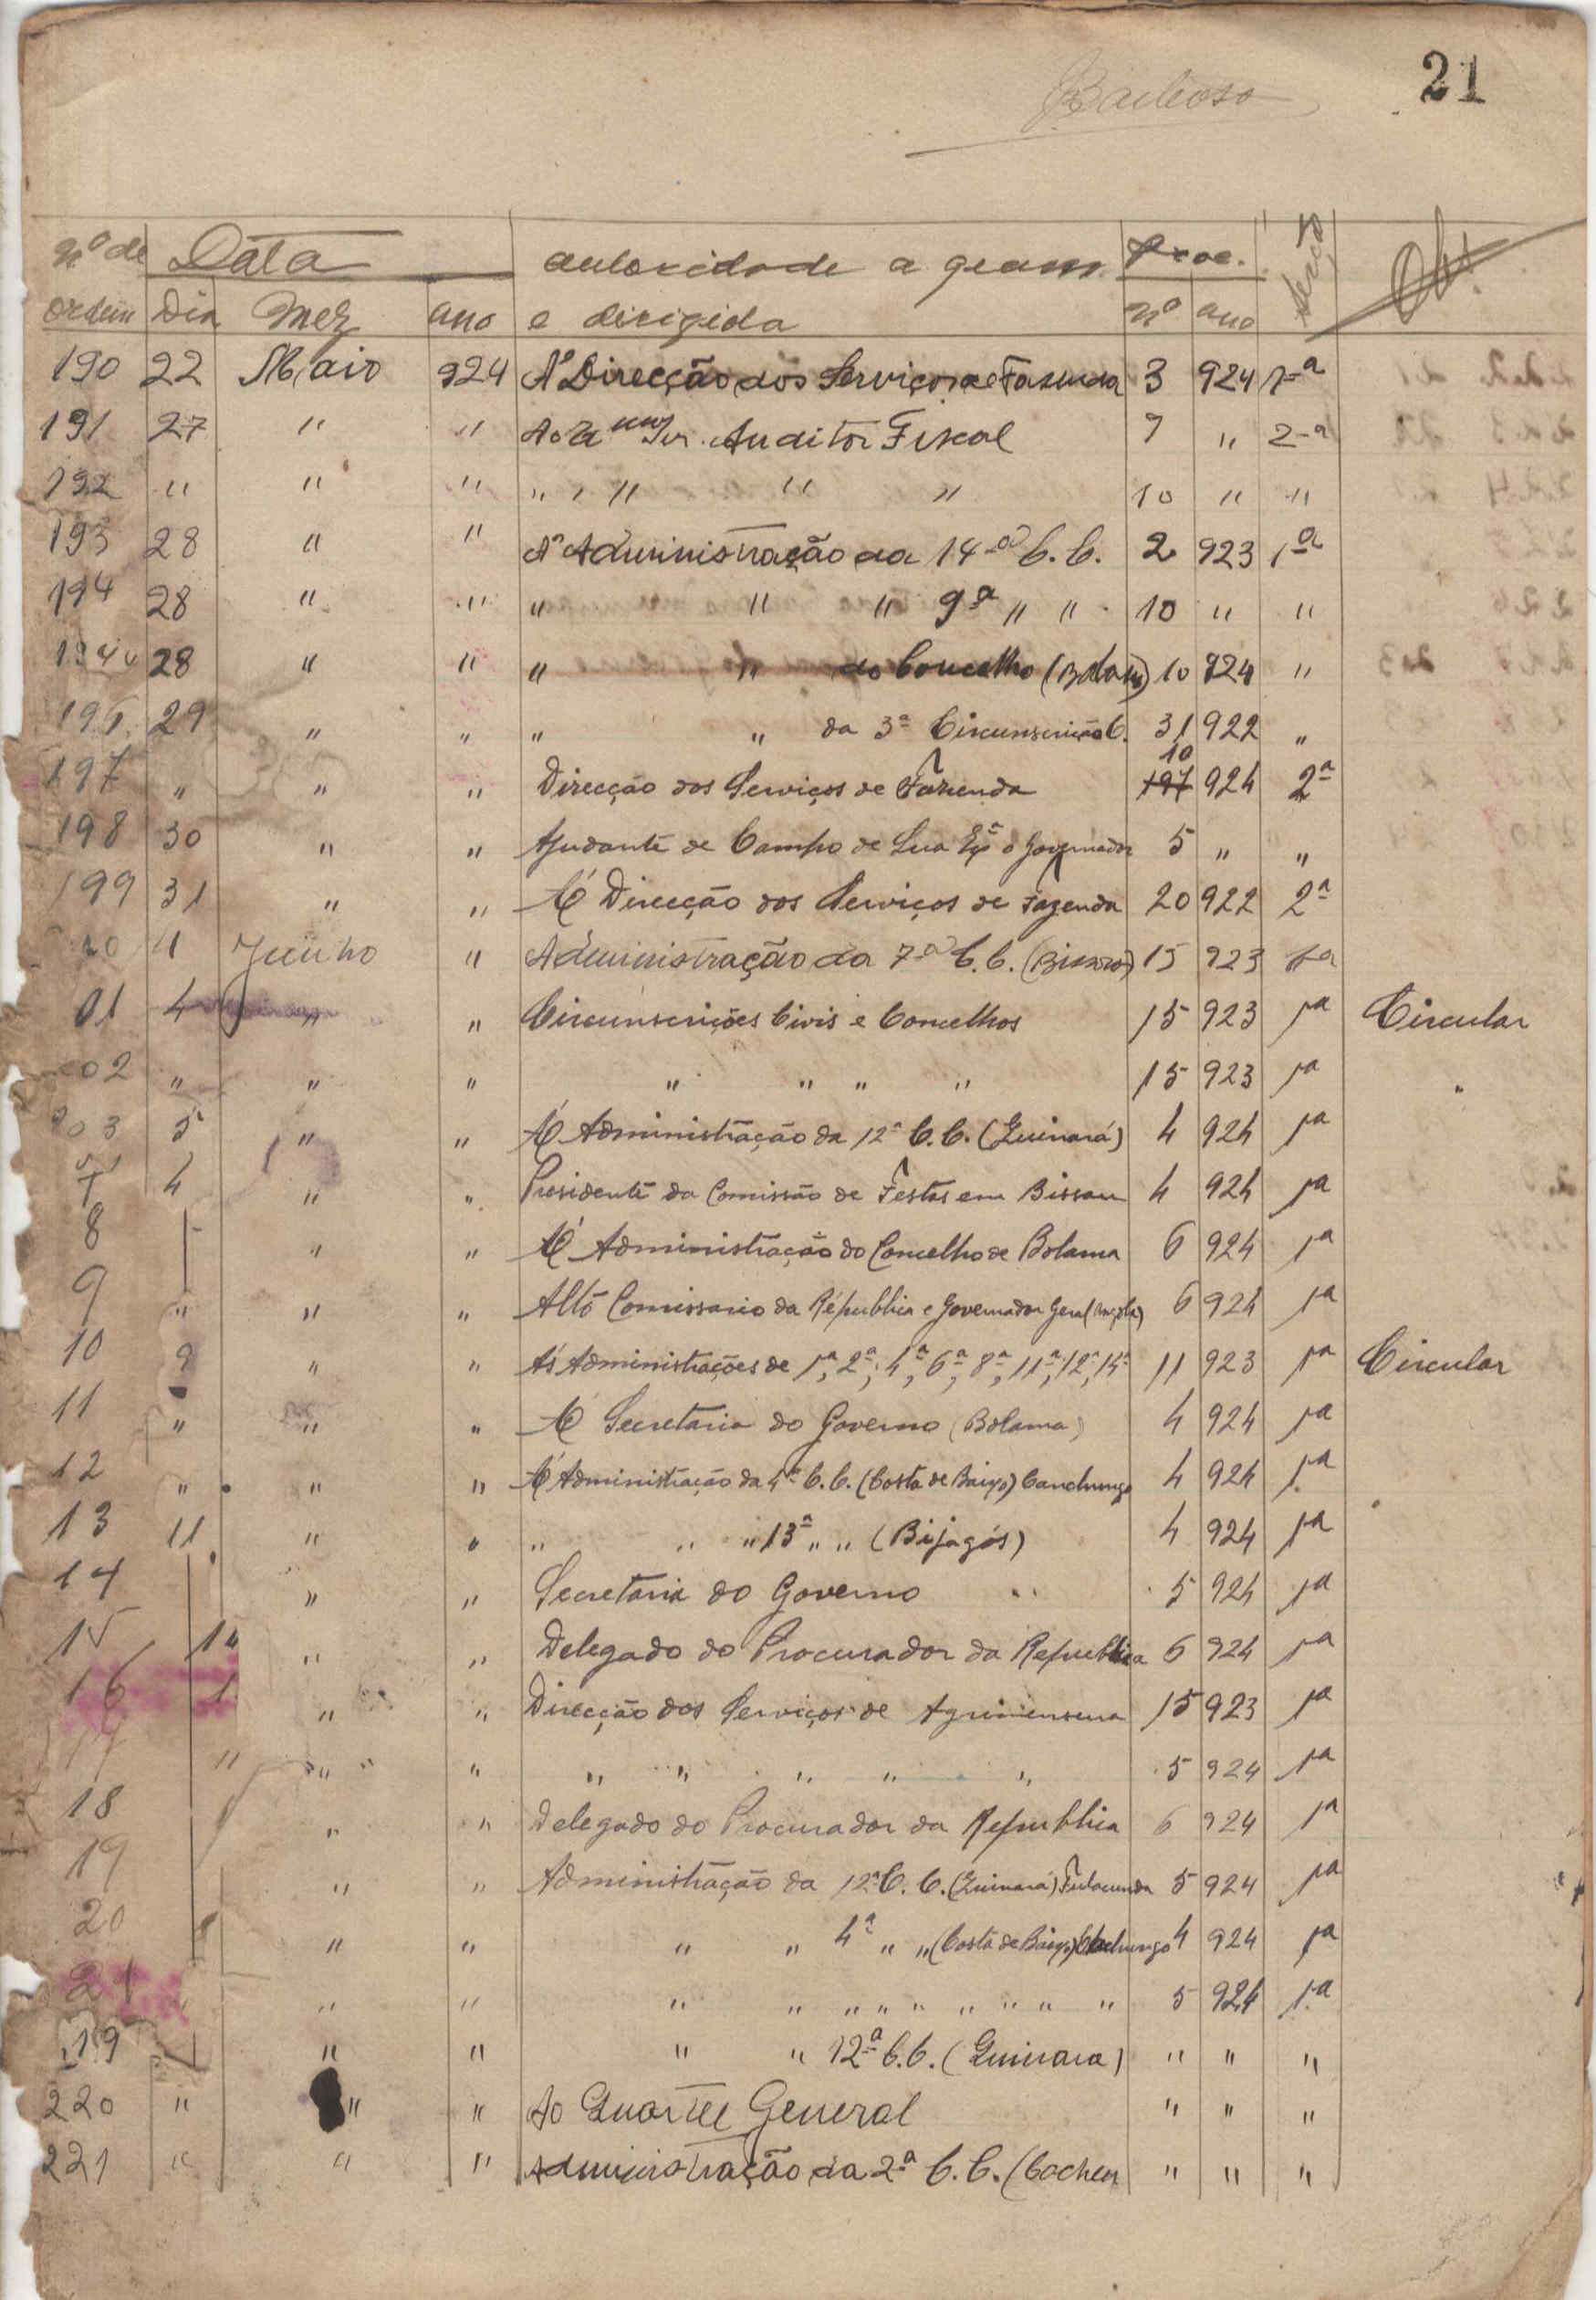 21
Barbosa
Nº de Data autoridade a quem Proc. Secção Obs.
ordem Dia Mez ano é dirigida nº ano
190 22 Maio 924 Á Direcção dos Serviços de Fazenda 3 924 1ª
191 27 " " Ao Sr. Auditor Fiscal 7 " 2ª
192 " " " " " " " " 10 " "
193 28 " " Á Administração da 14ª C. C. 2 923 1ª
194 28 " " " " " 9ª " " 10 " "
28 " " " " do Concelho (Bolama) 10 924 "
196 29 " " " " da 3ª Circunscrição C. 31 922 "
197 " " " Direcção dos Serviços de Fazenda 197 10 924 2ª
198 30 " " Ajudante de Campo de Sua Exª o Governador 5 " "
199 31 " " Á Direcção dos Serviços de Fazenda 20 922 2ª
Junho " Administração da 7ª C. C. (Bissorã) 15 923 1ª
01 4 " " Circunscrições Civis e Concelhos 15 923 1ª Circular
02 " " " " " " " 15 923 1ª "
203 5 " " Á Administração da 12ª C. C. (Quinará) 4 924 1ª
4 " " Presidente da Comissão de Festas em Bissau 4 924 1ª
8 " " Á Administração do Concelho de Bolama 6 924 1ª
9 " " " Alto Comissario da Républica e Governador Geral (Angola) 6 924 1ª
10 9 " " Ás Administrações de 1ª, 2ª, 4ª, 6ª, 8ª, 11ª, 12ª, 14ª 11 923 1ª Circular
11 " " " Á Secretaria do Governo (Bolama) 4 924 1ª
12 " " " Á Administração da 4ª C. C. (Costa de Baixo) Canchungo 4 924 1ª
13 11 " " " " " 13ª " " (Bijagós) 4 924 1ª
14 " " Secretaria do Governo 5 924 1ª
15 " " Delegado do Procurador da Republica 6 924 1ª
16 " " Direcção dos Serviços de Agrimensura 15 923 1ª
17 " " " " " " " " 5 924 1ª
18 " " Delegado do Procurador da Republica 6 924 1ª
19 " " Administração da 12ª C. C. (Quinará) Fulacunda 5 924 1ª
20 " " " " 4ª " " (Costa de Baixo) Canchungo 4 924 1ª
21 " " " " " " " " " " " 5 924 1ª
19 " " " " 12ª C. C. (Quinara) " " "
220 " " " Ao Quartel General " " "
221 " " " Administração da 2ª C. C. (Cacheu " " "